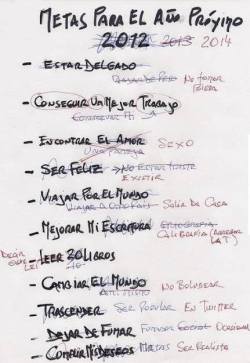 METAS PARA EL AÑO PRÓXIMO
2012 2013 2014
- ESTAR DELGADO
BAJAR DE PESO NO TOMAR
- CONSEGUIR UN MEJOR TRABAJO
CONSERVAR MI
- ENCONTRAR EL AMOR SEXO
UNA PAREJA
- SER FELIZ → NO ESTAR TRISTE
EXISTIR
- VIAJAR POR EL MUNDO
VIAJAR A OTRO PAÍS SALIR DE CASA
- MEJORAR MI ESCRITURA ORTOGRAFÍA
CALIGRAFÍA
DECIR QUE LEÍ
- LEER 20 LIBROS
10
- CAMBIAR EL MUNDO NO BOLUDEAR
- TRASCENDER SER POPULAR EN TWITTER
- DEJAR DE FUMAR FUMADOR SOCIAL
- CUMPLIR MIS DESEOS METAS SER REALISTA